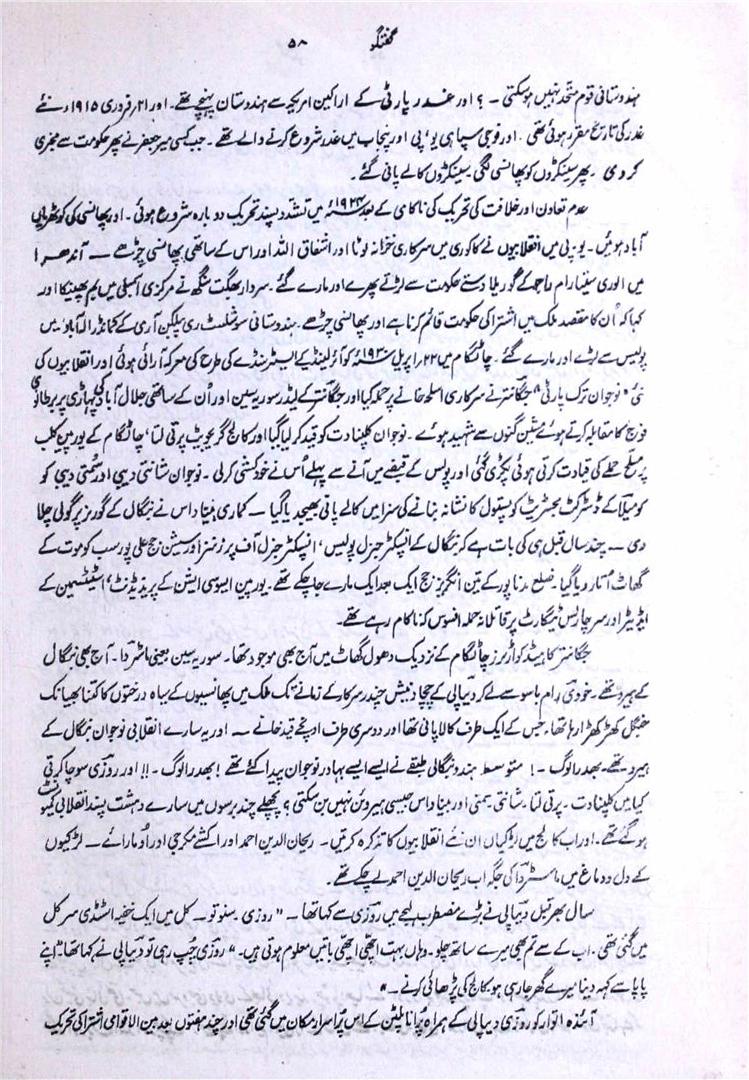 گفتگو ۵۸
ہندوستانی قوم متحد نہیں ہوسکتی ۔ ؟ اور غدر پارٹی کے اراکین امریکہ سے ہندوستان پہنچے تھے ۔ اور ۲۱؍ فروری ۱۹۱۵ء نئے
غدر کی تاریخ مقرر ہوئی تھی ۔ اور فوجی سپاہی یو ، پی اور پنجاب میں غدر شروع کرنے والے تھے ۔ جب کسی میر جعفر نے پھر حکومت سے مخبری
کر دی ۔ پھر سینکڑوں کو پھانسی لگی سینکڑوں کالے پانی گئے ۔
عدم تعاون اور خلافت کی تحریک کی ناکامی کے بعد ۱۹۲۴ء میں تشدد پسند تحریک دوبارہ شروع ہوئی ۔ اور پھانسی کی کوٹھریاں
آباد ہوئیں ۔ یو ۔ پی میں انقلابیوں نے کاکوری میں سرکاری خزانہ لوٹا اور اشفاق اللہ اور اس کے ساتھی پھانسی چڑھے ۔ آندھرا
میں الوری سیتارام راجو کے گوریلا دستے حکومت سے لڑتے پھرے اور مارے گئے ۔ سردار بھگت سنگھ نے مرکزی اسمبلی میں بم پھینکا اور
کہا کہ اُن کا مقصد ملک میں اشتراکی حکومت قائم کرنا ہے اور پھانسی چڑھے ۔ ہندوستانی سوشلسٹ ری پبلکن آرمی کے کمانڈر الہ آباد میں
پولیس سے لڑے اور مارے گئے ۔ چاٹگام میں ۲۲؍ اپریل ۱۹۳۰ء کو آئرلینڈ کے ایسٹر سنڈے کی طرح کی معرکہ آرائی ہوئی اور انقلابیوں کی
نئی " نوجوان ترک پارٹی " جگانتر نے سرکاری اسلحہ خانے پر حملہ کیا اور جگانتر کے لیڈر سوریہ سین اور اُن کے ساتھی جلال آباد کی پہاڑی پر برطانوی
فوج کا مقابلہ کرتے ہوئے مشین گنوں سے شہید ہوئے ۔ نوجوان کلپنا دت کو قید کر لیا گیا اور کالج گریجویٹ پرتی لتا ، چاٹگام کے یورپین کلب
پر مسلح حملے کی قیادت کرتی ہوئی پکڑی گئی اور پولس کے قبضے میں آنے سے پہلے اُس نے خودکشی کر لی ۔ نوجوان شانتی دیبی اور سنیتی دیبی کو
کومیلا کے ڈسٹرکٹ مجسٹریٹ کو پستول کا نشانہ بنانے کی سزا میں کالے پانی بھیجدیا گیا ۔ کماری بینا داس نے بنگال کے گورنر پر گولی چلا
دی ۔ چند سال قبل ہی کی بات ہے کہ بنگال کے انسپکٹر جنرل پولیس ، انسپکٹر جنرل آف پرزنز اور سیشن جج علی پور سب کو موت کے
گھاٹ اُتارا گیا ۔ ضلع مدنا پور کے تین انگریز جج ایک بعد ایک مارے جا چکے تھے ۔ یورپین ایسوسی ایشن کے پریذیڈنٹ ، اسٹیٹسمین کے
ایڈیٹر اور سر چارلس ٹیگارٹ پر قاتلانہ حملہ افسوس کہ ناکام رہے تھے ۔
جگانتر کا ہیڈ کوارٹرز چاٹگام کے نزدیک دھول گھاٹ میں آج بھی موجود تھا ۔ سوریہ سین یعنی ماسٹر دا ۔ آج بھی بنگال
کے ہیرو تھے ۔ خودی رام باسو سے لے کر دیپالی کے چچا دنیش چندر سرکار کے زمانے تک ملک میں پھانسیوں کے سیاہ درختوں کا کتنا بھیانک
جنگل کھڑکھڑا رہا تھا ، جس کے ایک طرف کالا پانی تھا اور دوسری طرف اونچے قید خانے ۔ اور یہ سارے انقلابی نوجوان بنگال کے
ہیرو تھے ۔ بھدر لوگ ۔ ! متوسط ہندو بنگالی طبقے نے ایسے ایسے بہادر نوجوان پیدا کئے تھے ! بھدر لوگ ۔ !! اور روزی سوچا کرتی
کیا میں کلپنا دت ۔ پرتی لتا ۔ شانتی ۔ اور بینا داس جیسی ہیروئن نہیں بن سکتی ؟ پچھلے چند برسوں میں سارے دہشت پسند انقلابی کمیونسٹ
ہو گئے تھے ۔ اور اب کالج میں لڑکیاں ان نئے انقلابیوں کا تذکرہ کرتیں ۔ ریحان الدین احمد اور اکشے مکرجی اور اوما رائے ۔ لڑکیوں
کے دل و دماغ میں ماسٹر دا کی جگہ اب ریحان الدین احمد لے چکے تھے ۔
سال بھر قبل دیپالی نے بڑے مضطرب لہجے میں روزی سے کہا تھا ۔ " روزی ۔ سنو تو ۔ کل میں ایک خفیہ اسٹڈی سرکل
میں گئی تھی ۔ اب کے سے تم بھی میرے ساتھ چلو ۔ وہاں بہت اچھی اچھی باتیں معلوم ہوتی ہیں ۔ " روزی چپ رہی تو دیپالی نے کہا تھا " اپنے
پاپا سے کہہ دینا میرے گھر جا رہی ہو کالج کی پڑھائی کرنے ۔ "
آئندہ اتوار کو روزی دیپالی کے ہمراہ پُرانا پلٹن کے اس پُراسرار مکان میں گئی تھی اور چند ہفتوں بعد بین الاقوامی اشتراکی تحریک